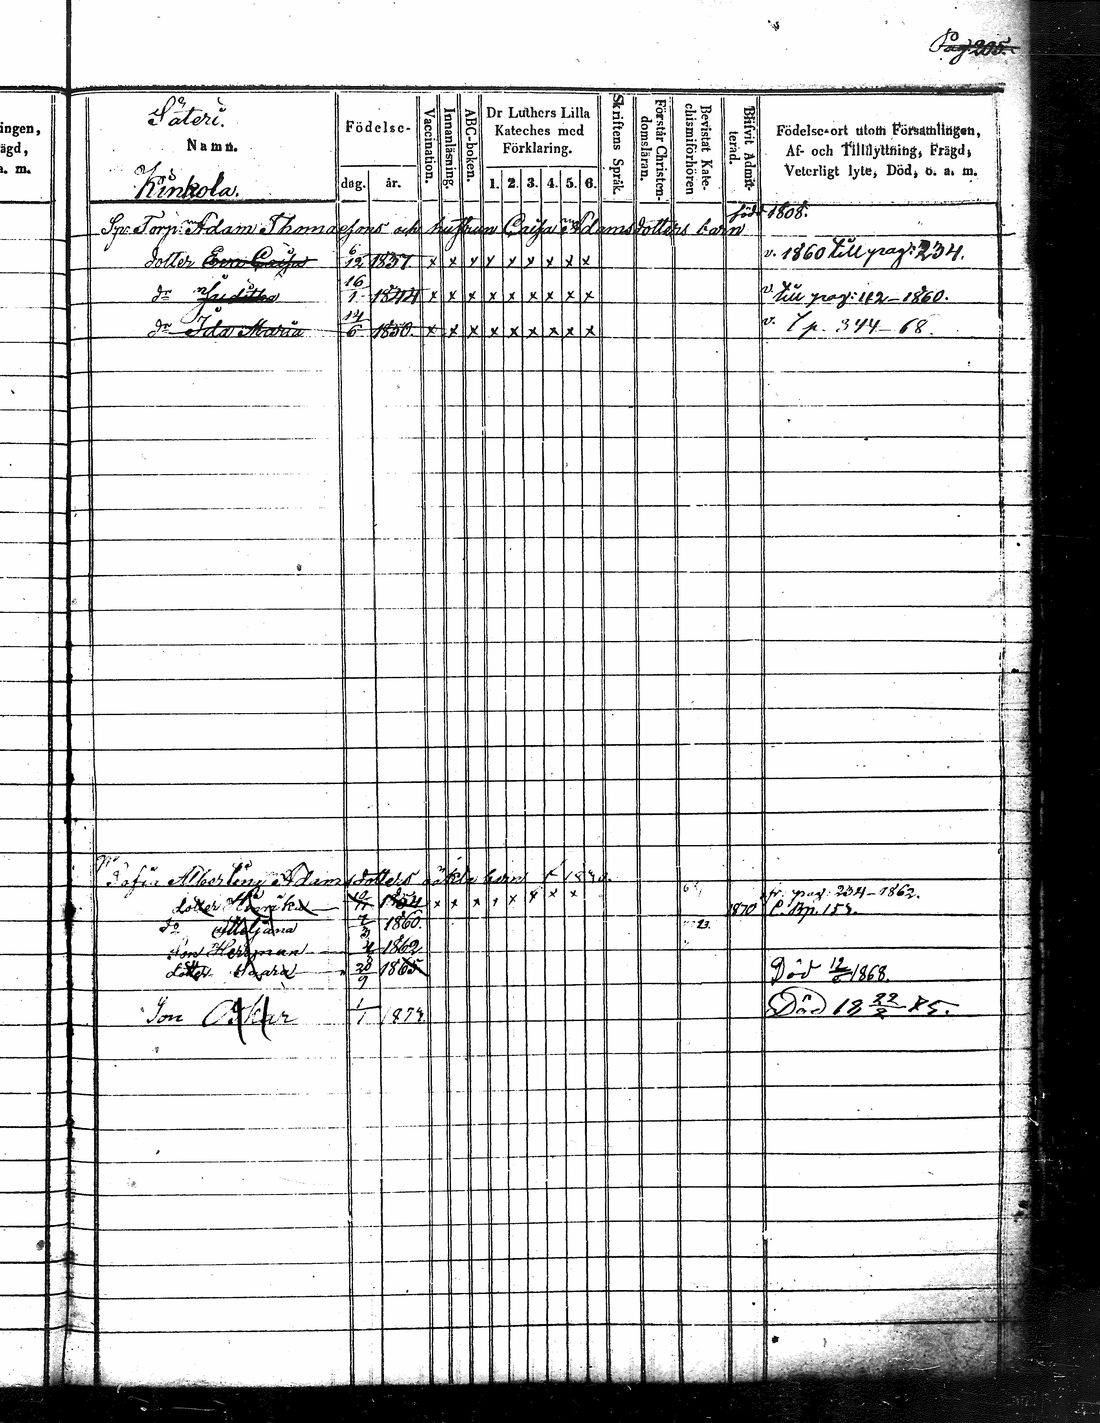 Pag. 205.
ingen,
ägd,
a. m.
Säteri.
Namn.
Kinkola.
Födelse-
dag. år.
Vaccination.
Innanläsning.
ABC-boken.
Dr Luthers Lilla
Kateches med
Förklaring.
1. 2. 3. 4. 5. 6.
Skriftens Språk.
Förstår Christen-
domsläran.
Bevistat Kate-
chismiförhören
Blifvit Admit-
terad.
Födelse-ort utom Församlingen,
Af- och Tillflyttning, Frägd,
Veterligt lyte, Död, o. a. m.
Torp: Adam Thomaesons och hustrun Caisa Adamsdotters barn född 1808.
dotter Eva Caisa 6/12 1837. x x x x x x x x x v. 1860 till pag: 234.
dr Juditha 16/1 1844 x x x x x x x x x v. till pag: 112-1860.
dr Ida Maria 14/6 1850. x x x x x x x x x v. 344-68.
Albertina Adamsdotters oäkta barn
dotter 1854 x x x x x x x x 1870 fr. pag: 234-1862.
do 1860.
Son Herrman 1862
dotter Maria 28/9 1865 Död 12/6 1868.
Son Oskar 1/1 1872. Död 18 22/2 85.